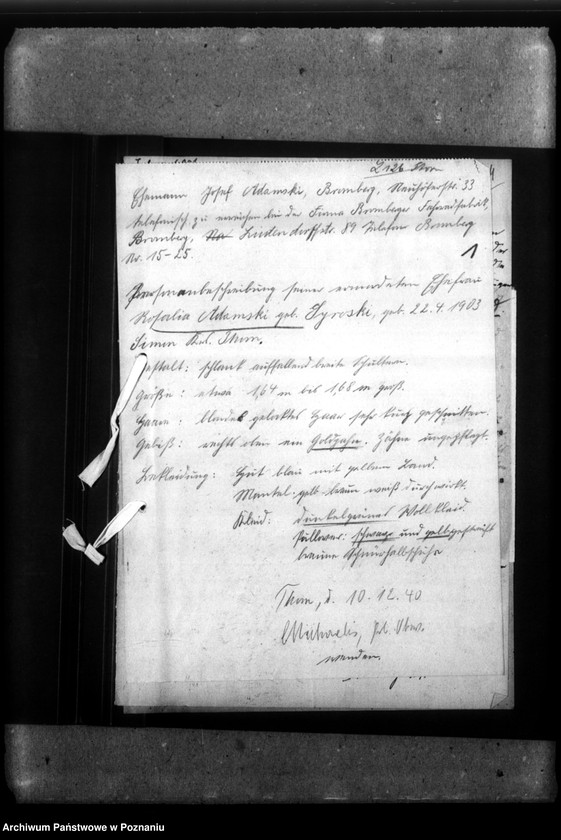 L 126 Thorn
Ehemann Josef Adamski, Bromberg, Neuhöferstr. 33
telefonisch zu erreichen bei der Firma Bromberger Fahrradfabrik,
Bromberg, Ludendorffstr. 89 Telefon Bromberg
Nr. 15-25.
1
Personenbeschreibung seiner ermordeten Ehefrau
Rosalia Adamski geb. geb. 22.4.1903
Kul. Thorn.
Gestalt: schlank auffallend breite Schultern.
Größe: etwa 1,64 m bis 1,68 m groß.
Haare: blondes gelocktes Haar sehr kurz geschnitten.
Gebiß: rechts oben ein Goldzahn. Zähne ungepflegt.
Bekleidung: Hut blau mit gelbem Band.
Mantel: gelb-braun weiß durchwirkt.
Kleid: dunkelgrünes Wollkleid.
Pullover: schwarz und gelbgestreift
braune Schnürhalbschuhe
Thorn, d. 10.12.40
Michaelis,
wenden.
Archiwum Państwowe w Poznaniu